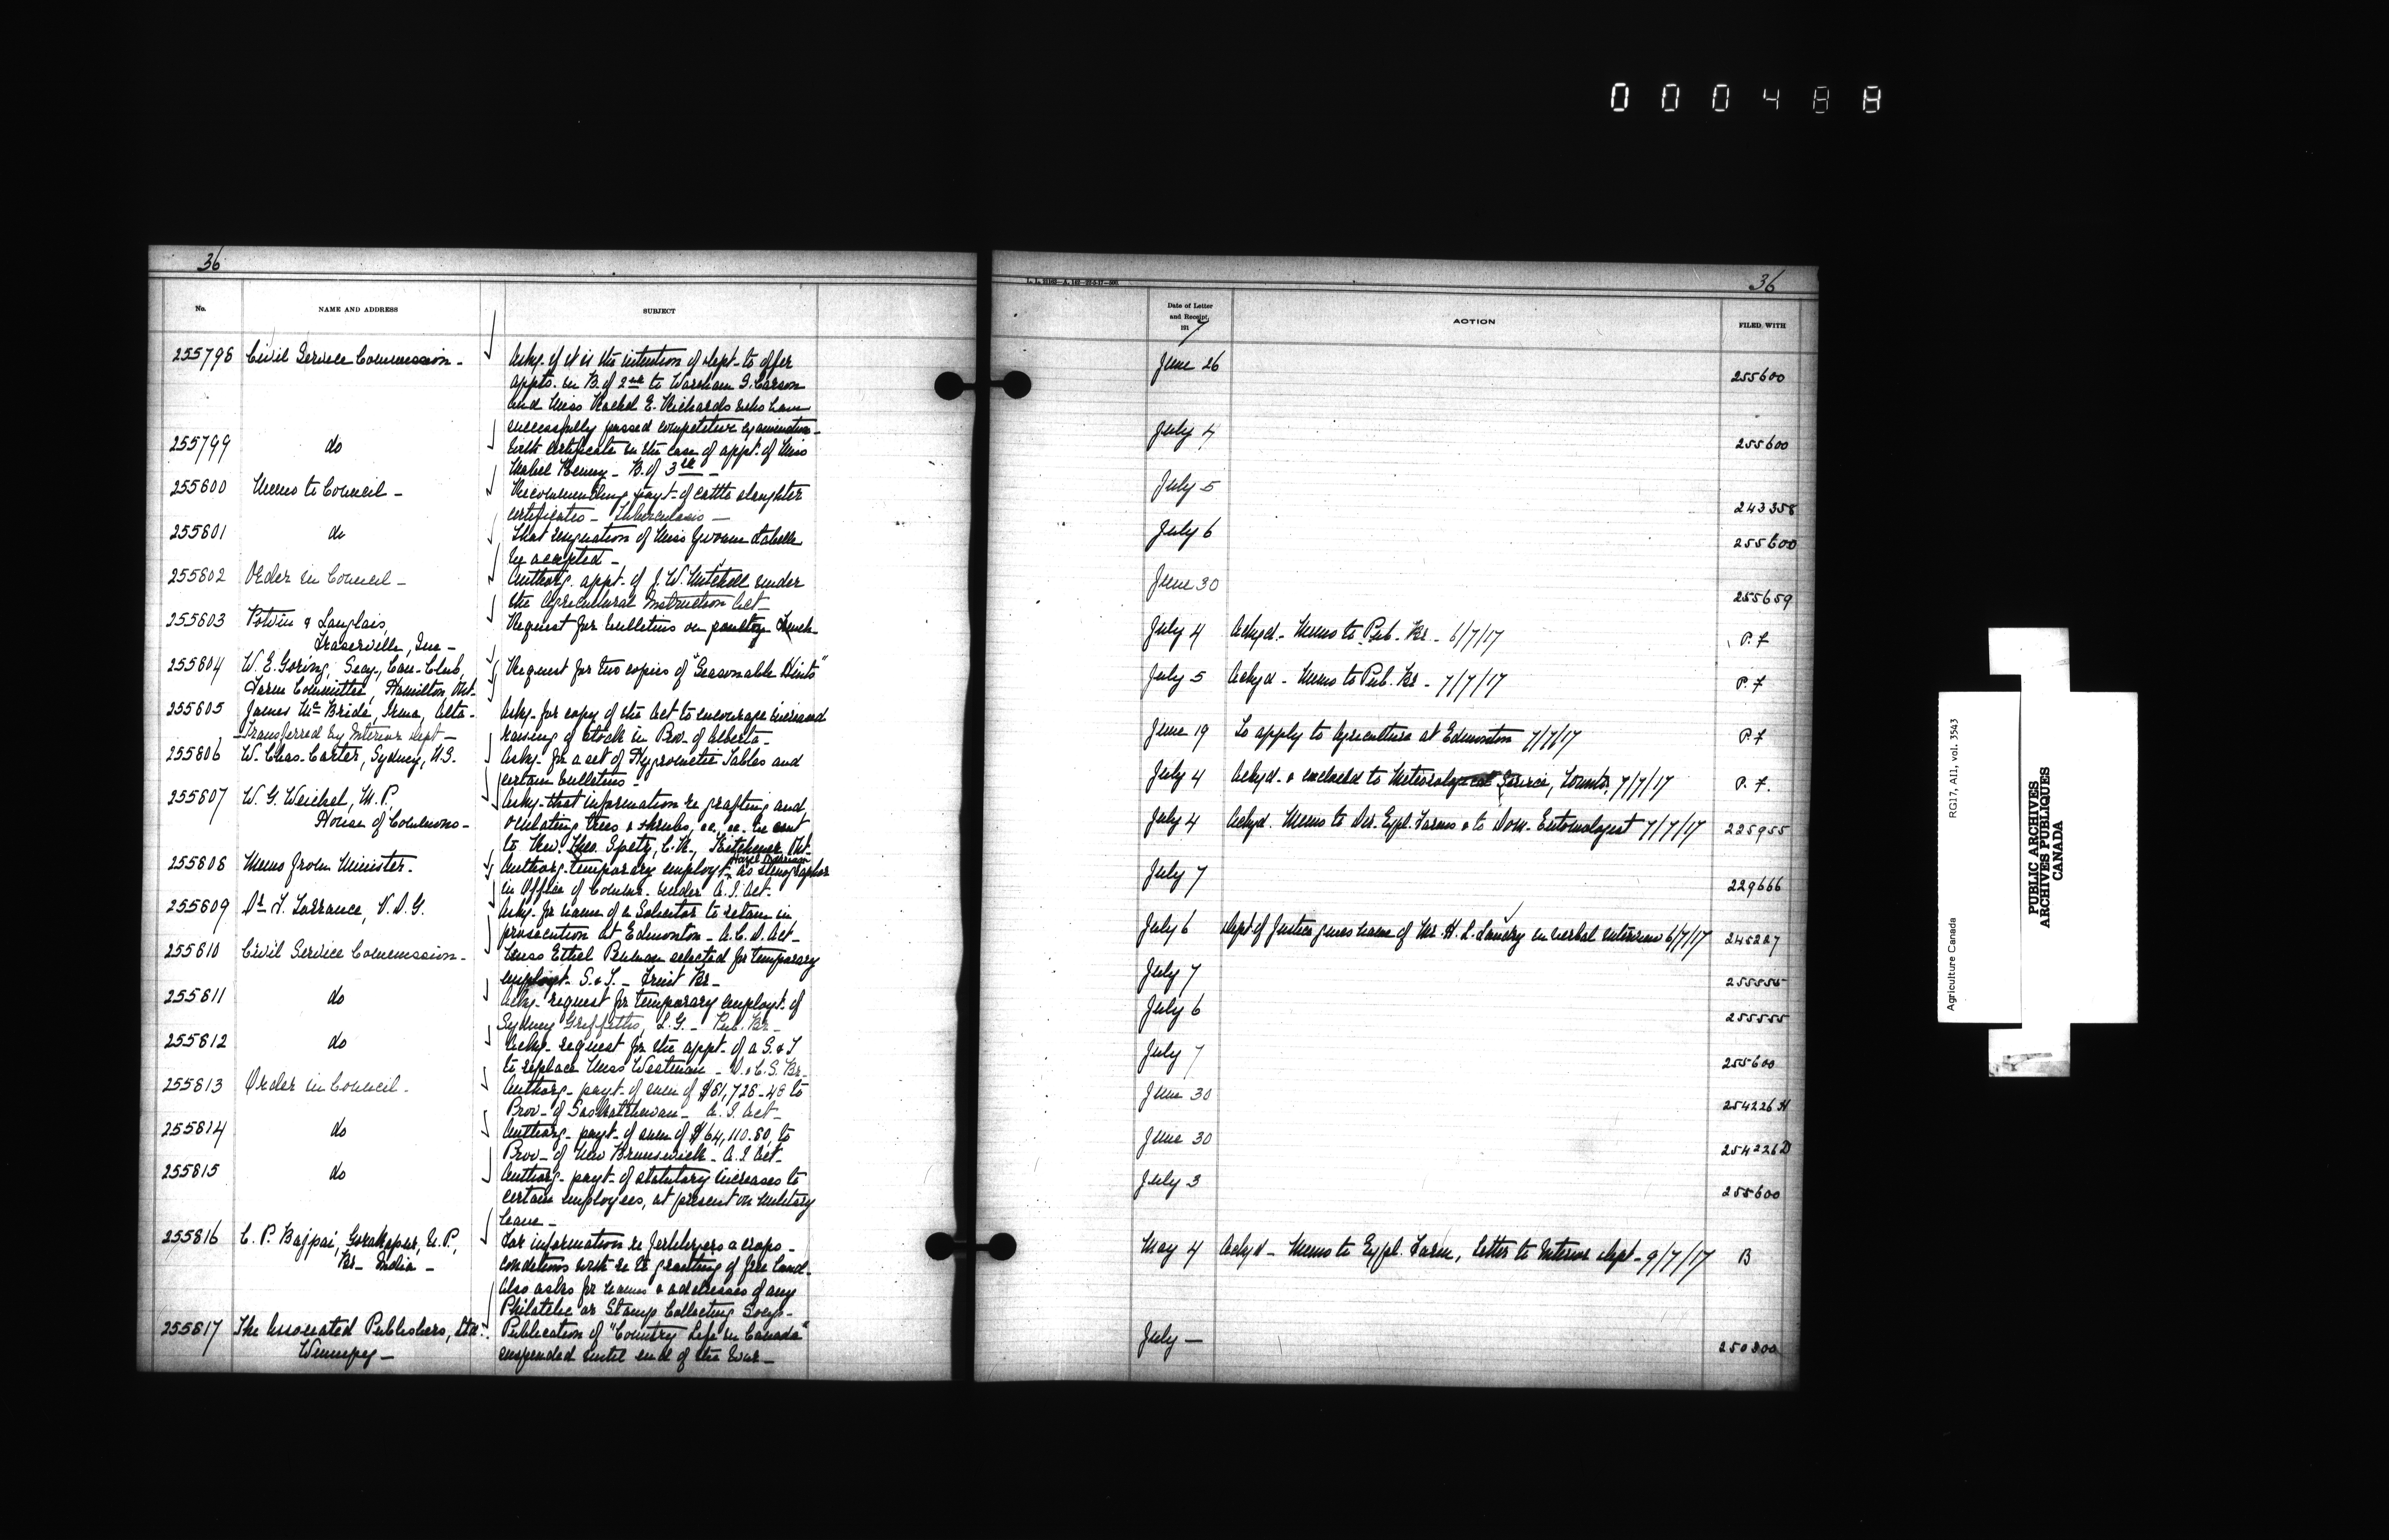 000488
36
No.
NAME AND ADDRESS
SUBJECT
255798 Civil Service Commission - Askg. if it is the intention of dept. to offer
appts. in B. of 2nd to Wareham S. Carson
and Miss Rachel E. Richards who have
successfully passed competitive examination -
255799 do With certificate in the case of appt. of Miss
Mabel Kenny - B. of 3rd -
255800 Memo to Council - Recommending payt. of cattle slaughter
certificates - Tuberculosis -
255801 do That resignation of Miss Yvonne Labelle
be accepted -
255802 Order in Council - Authorg. appt. of J. W. Mitchell under
the Agricultural Instruction Act -
255803 Potvin & Langlais, Request for bulletins on poultry French
Fraserville, Que -
255804 W. E. Goring, Secy., Can. Club, Request for two copies of "Seasonable Hints"
Farm Committee, Hamilton, Ont.
255805 James McBride, Irma, Alta - Askg. for copy of the Act to encourage increased
- Transferred by Interior Dept - raising of stock in Prov. of Alberta -
255806 W. Chas. Carter, Sydney, N.S. Askg. for a set of Hygrometic Tables and
certain bulletins -
255807 W. G. Weichel, M.P., Askg. that information re grafting and
House of Commons - trees & shrubs, &c., &c. be sent
to Rev. Theo. Spetz, C.R., Kitchener, Ont.
255808 Memo from Minister. Authorg. temporary employt. Hazel as stenographer
in Office of Commr. under A. I. Act -
255809 Dr F. Torrance, V.D.G. Askg. for name of a Solicitor to retain in
prosecution at Edmonton - A.C.D. Act -
255810 Civil Service Commission - Miss Ethel selected for temporary
employt. S. & T. - Fruit Br -
255811 do request for temporary employt. of
Sydney Griffiths, L.G. - Pub. Br -
255812 do request for the appt. of a S. & T
to replace Miss Westman - D. & C.S. Br -
255813 Order in Council - Authorg. payt. of sum of $81,728.48 to
Prov. of Saskatchewan - A. I. Act -
255814 do Authorg. payt. of sum of $64,110.80, to
Prov. of New Brunswick - A. I. Act -
255815 do Authorg. payt. of statutory increases to
certain employees, at present on military
leave -
255816 C. P. Bajpai, Gorakhpur, U. P., For information re fertilizers & crops -
Br. India - conditions with re to granting of free land -
Also asks for names & addresses of any
Philatelic or Stamp Collecting Socys -
255817 The Associated Publishers, Ltd. Publication of "Country Life in Canada"
Winnipeg - suspended until end of the War -
36
Date of Letter
and Receipt,
1917
ACTION
FILED WITH
June 26 255600
July 4 255600
July 5 243358
July 6 255600
June 30 255659
July 4 Ackgd - Memo to Pub. Br - 6/7/17 P. F
July 5 Ackgd - Memo to Pub. Br - 7/7/17 P. F
June 19 To apply to Agriculture at Edmonton 7/7/17 P. F
July 4 Ackgd. & enclosed to Meteorological Service, Toronto, 7/7/17 P. F.
July 4 Ackgd. Memo to Dir. Expl. Farms & to Dom. Entomologist 7/7/17 225955
July 7 229666
July 6 Dept of Justice gives name of Mr. H. L. Landry in verbal interview 6/7/17 245227
July 7 255555
July 6 255555
July 7 255600
June 30 254226 H
June 30 254226 D
July 3 255600
May 4 Ackgd - Memo to Expl. Farm, letter to Interior Dept - 9/7/17 B
July - 250300
Agriculture Canada
RG17, AII, vol. 3543
PUBLIC ARCHIVES
ARCHIVES PUBLIQUES
CANADA